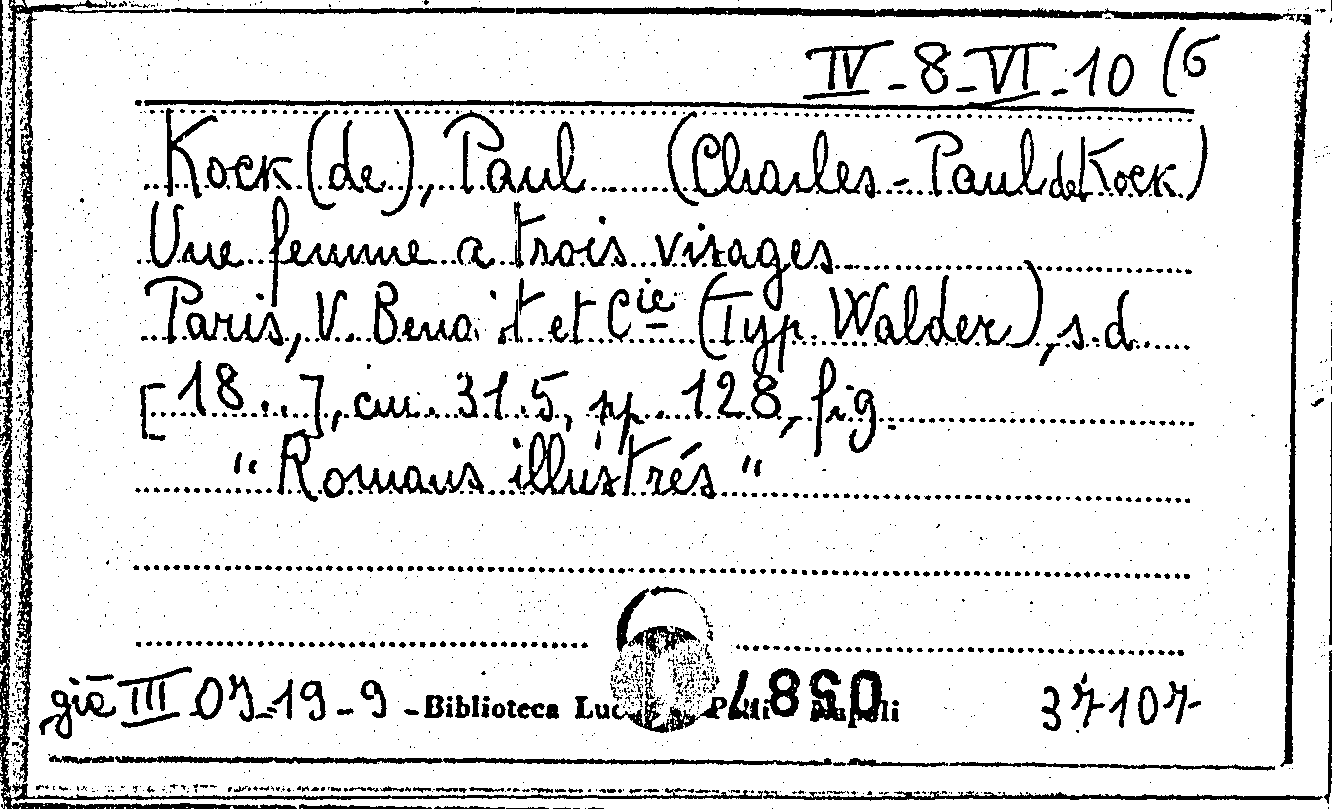 IV-8-VI-10 (6
Kock (de), Paul (Charles-Paul de Kock)
Une femme a trois visages
Paris, V. Benoît et Cie (Typ. Walder), s.d.
[18..], cm. 31.5, pp. 128, fig.
"Romans illustrés"
già III 07-19-9 - Biblioteca Napoli 37107